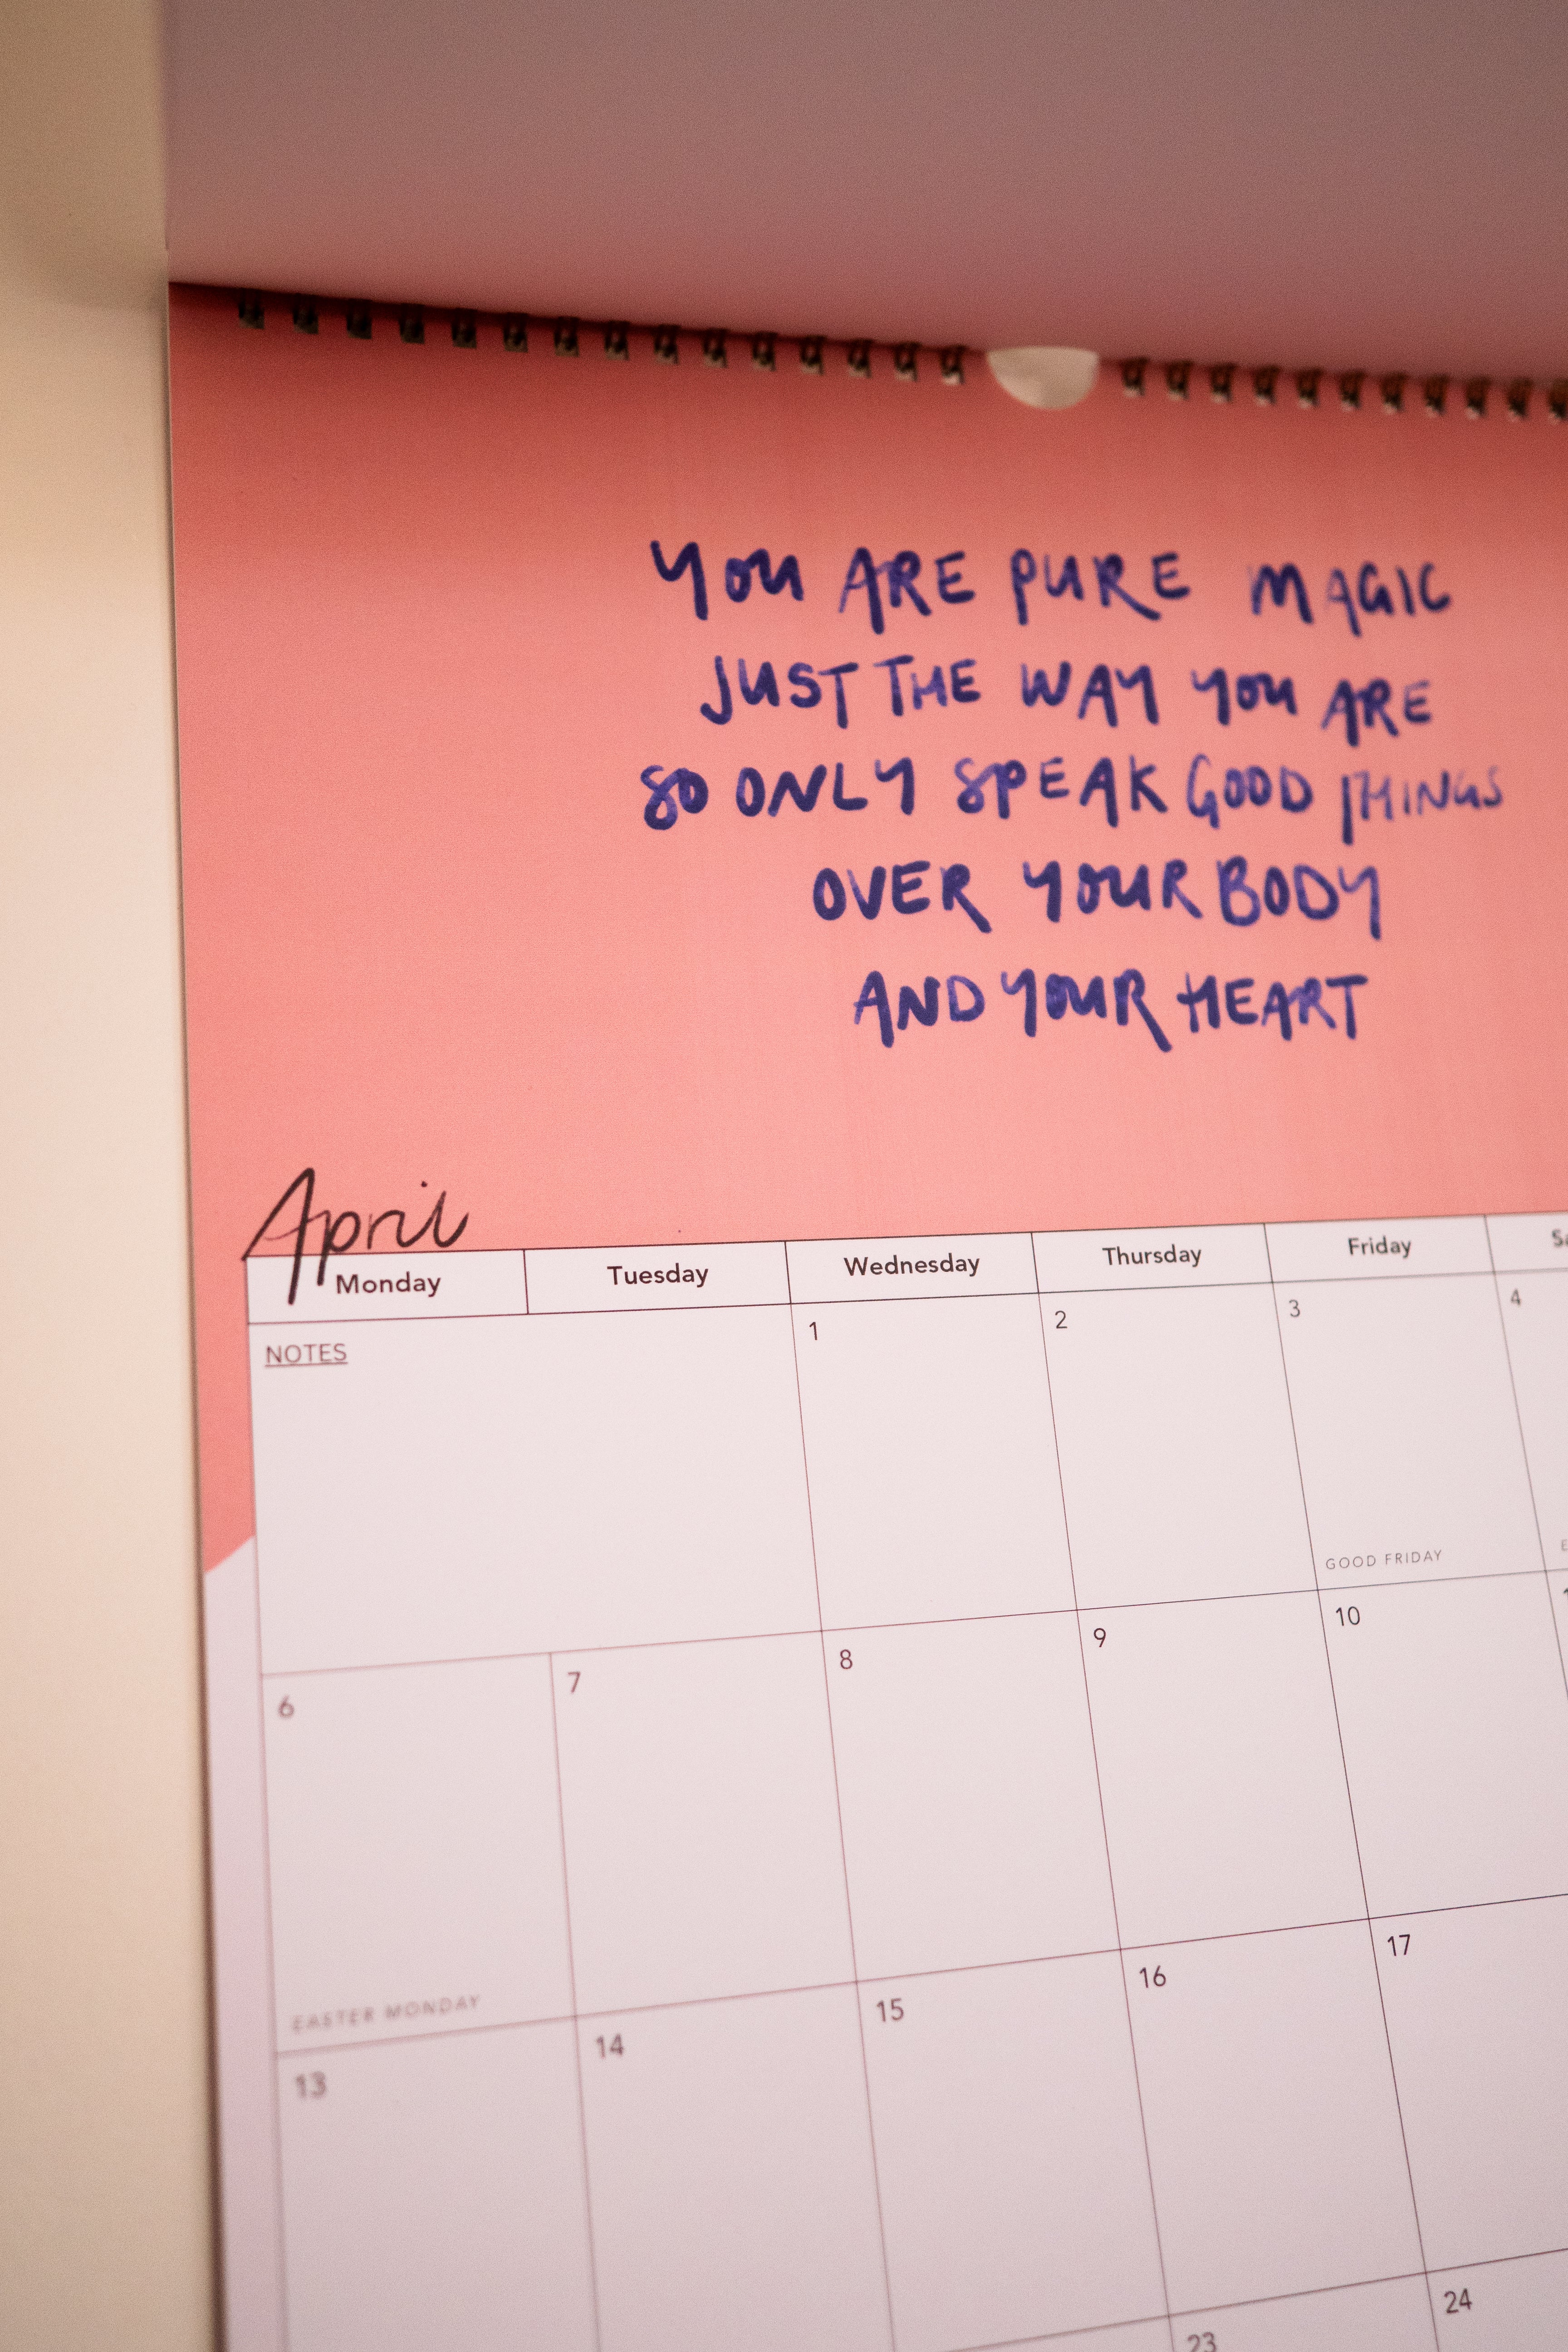 YOU ARE PURE MAGIC
JUST THE WAY YOU ARE
SO ONLY SPEAK GOOD THINGS
OVER YOUR BODY
AND YOUR HEART
April
Monday Tuesday Wednesday Thursday Friday
NOTES 1 2 3 4
GOOD FRIDAY
6 7 8 9 10
EASTER MONDAY
13 14 15 16 17
23 24